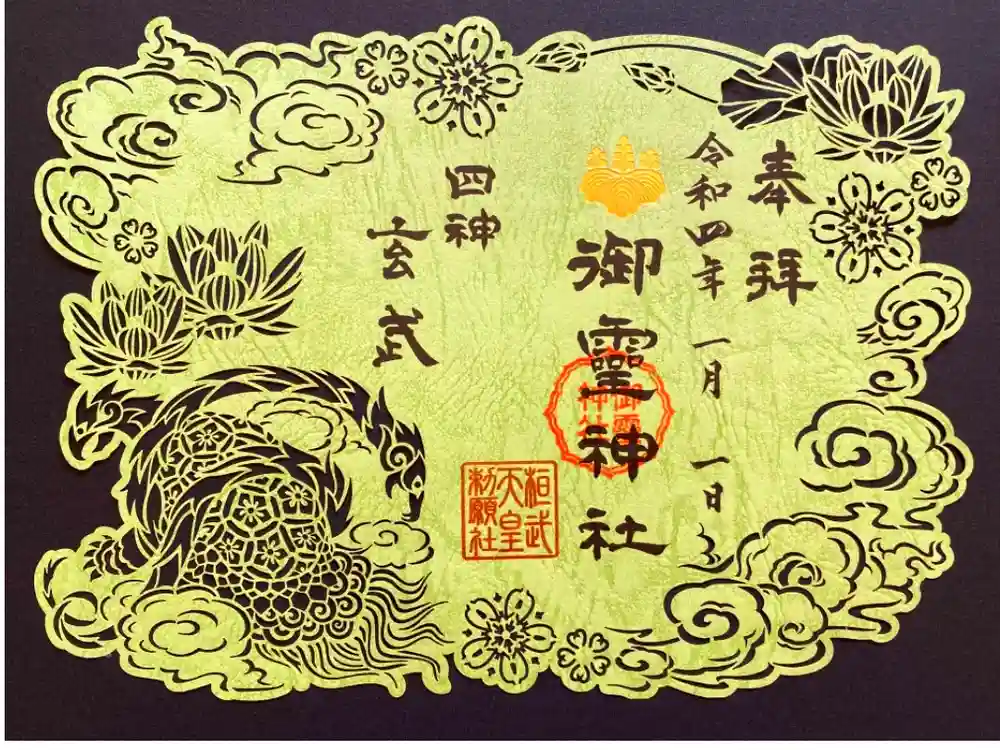 奉拝
令和四年 一月 一日
御靈神社
御霊神社
桓武
天皇
勅願社
四神
玄武